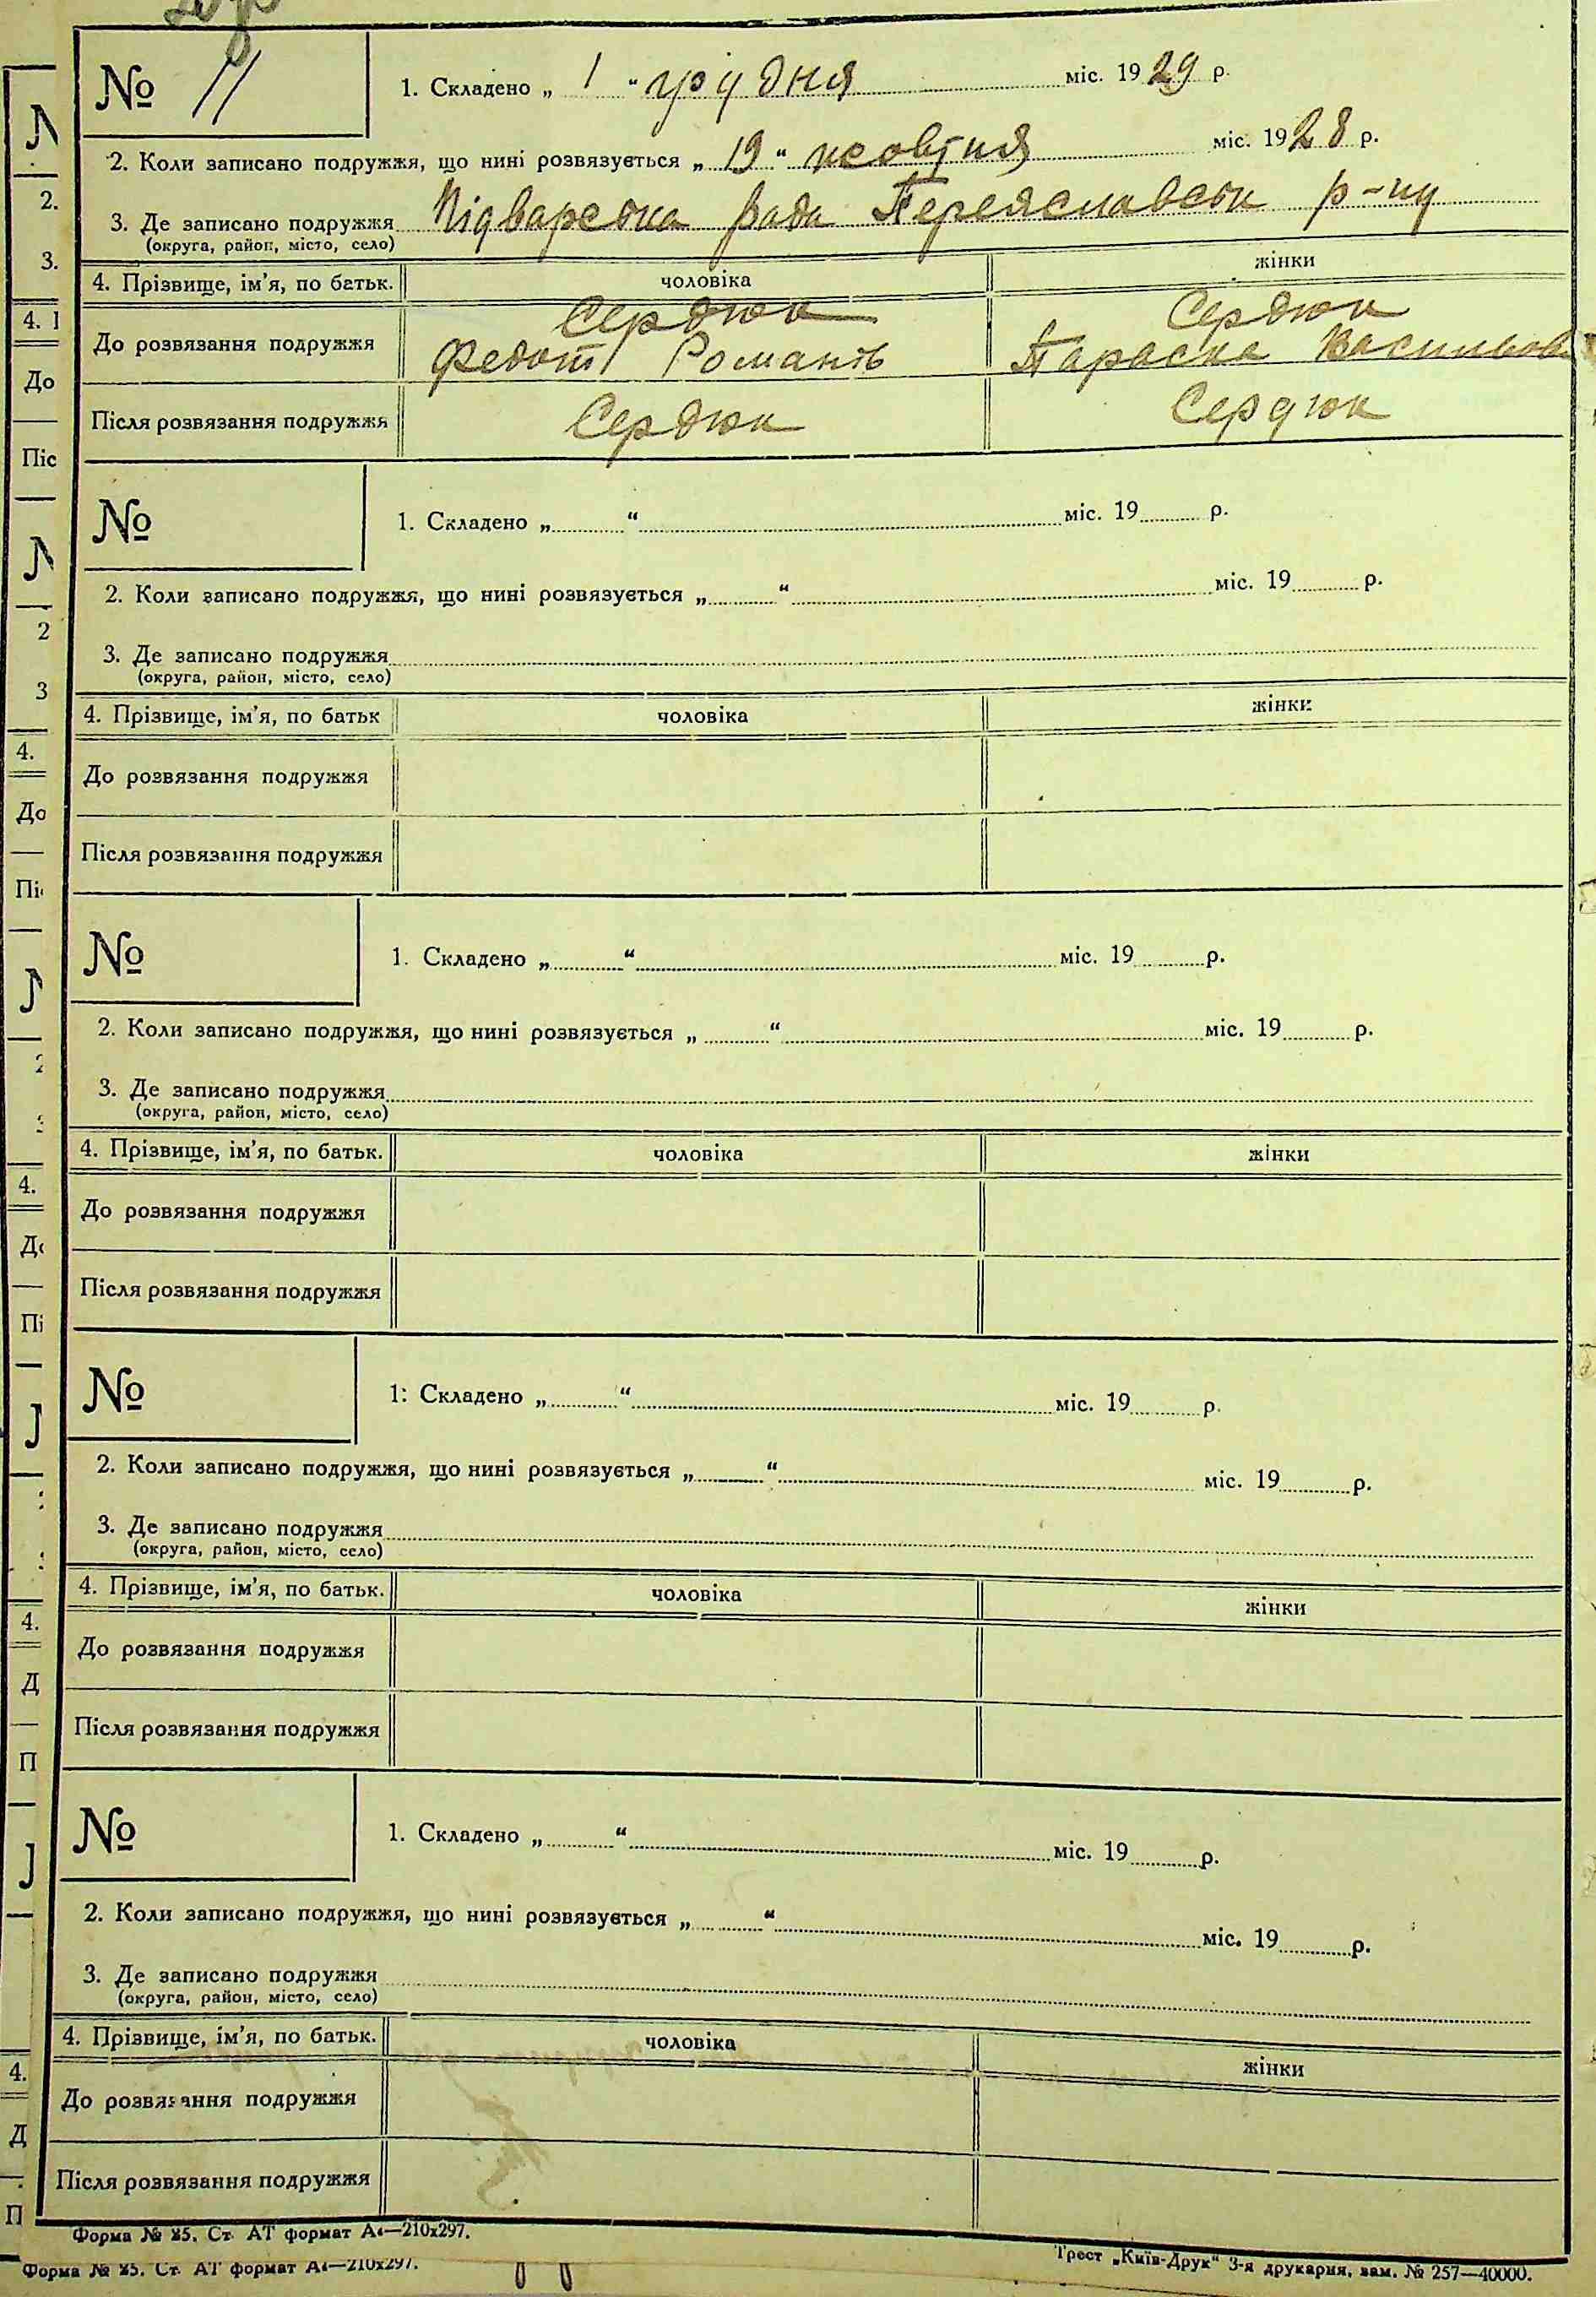 № 11
1. Складено „ 1 “ грудня міс. 1929 р.
2. Коли записано подружжя, що нині розвязується „ 19 “ жовтня міс. 1928 р.
3. Де записано подружжя Підварська рада Переяславськ р-ну
(округа, район, місто, село)
4. Прізвище, ім’я, по батьк. чоловіка жінки
До розвязання подружжя Сердюк Федот Романів Сердюк Параска Васильов
Після розвязання подружжя Сердюк Сердюк
№
1. Складено „ “ міс. 19 р.
2. Коли записано подружжя, що нині розвязується „ “ міс. 19 р.
3. Де записано подружжя
(округа, район, місто, село)
4. Прізвище, ім’я, по батьк чоловіка жінки
До розвязання подружжя
Після розвязання подружжя
№
1. Складено „ “ міс. 19 р.
2. Коли записано подружжя, що нині розвязується „ “ міс. 19 р.
3. Де записано подружжя
(округа, район, місто, село)
4. Прізвище, ім’я, по батьк. чоловіка жінки
До розвязання подружжя
Після розвязання подружжя
№
1. Складено „ “ міс. 19 р.
2. Коли записано подружжя, що нині розвязується „ “ міс. 19 р.
3. Де записано подружжя
(округа, район, місто, село)
4. Прізвище, ім’я, по батьк. чоловіка жінки
До розвязання подружжя
Після розвязання подружжя
№
1. Складено „ “ міс. 19 р.
2. Коли записано подружжя, що нині розвязується „ “ міс. 19 р.
3. Де записано подружжя
(округа, район, місто, село)
4. Прізвище, ім’я, по батьк. чоловіка жінки
До розвязання подружжя
Після розвязання подружжя
Форма № 85. Ст. АТ формат А4—210х297.
Трест „Київ-Друк“ 3-я друкарня, зам. № 257—40000.
Форма № 85. Ст. АТ формат А4—210х297.